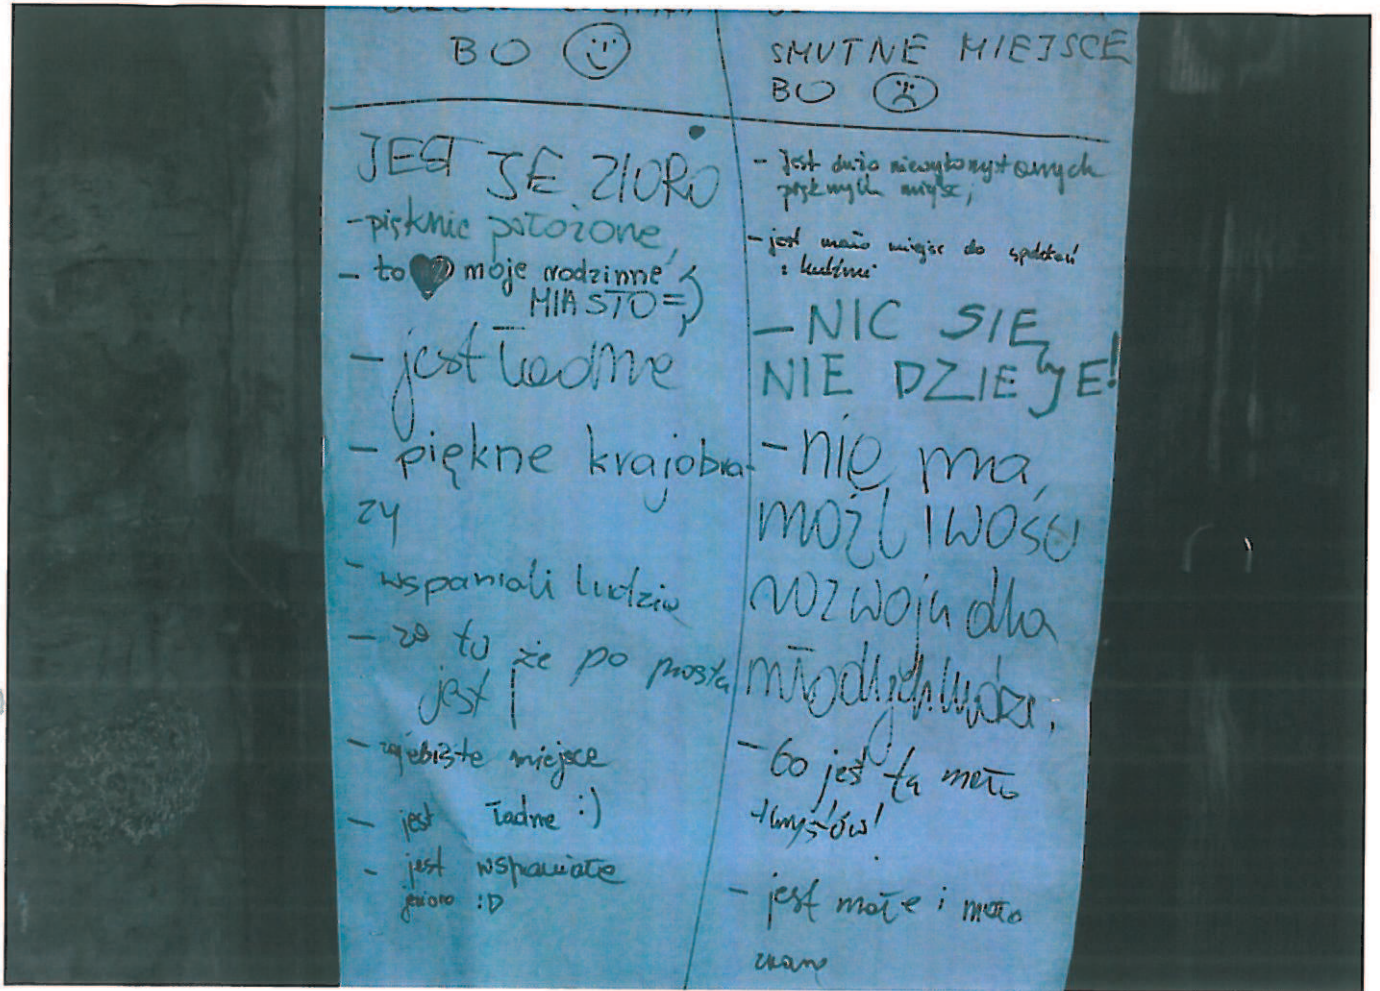 BO
JEST JEZIORO
- pięknie położone,
- to moje rodzinne
MIASTO =)
- jest ładne
- piękne krajobra-
zy
- wspaniali ludzie
- za to że po prostu
jest!
- zajebiste miejsce
- jest ładne :)
- jest wspaniałe
jezioro :D
SMUTNE MIEJSCE
BO
- jest dużo niewykorzystanych
pięknych miejsc,
- jest mało miejsc do spotkań
z ludźmi
- NIC SIĘ
NIE DZIEJE!
- nie ma
możliwości
rozwoju dla
młodych ludzi.
- bo jest tu mało
- jest małe i mało
znane